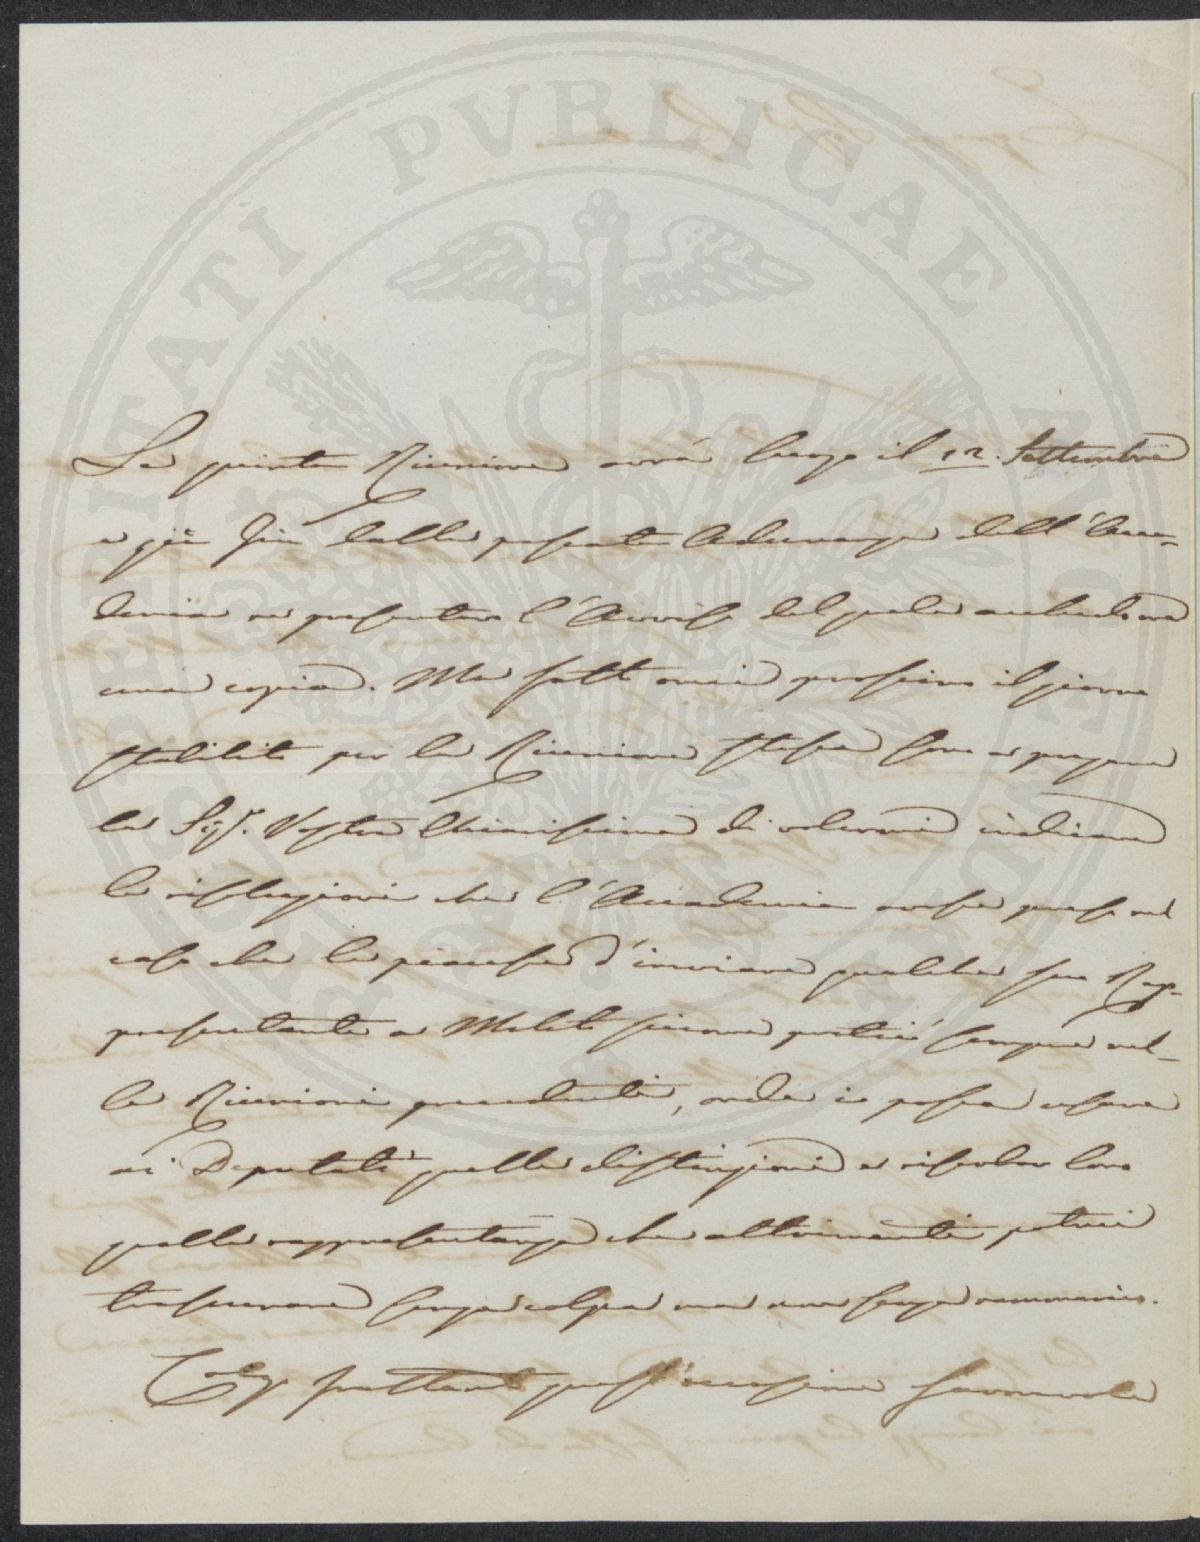 PROSPERITATI PUBLICAE AUGENDAE
La quinta Riunione avrà luogo il 12. Settembre
e già fin dalla presente Adunanza dell'Acca-
demia ne presentava l'Avviso del quale acchiudeva
una copia. Ma fatto omai prossimo il giorno
stabilito per la Riunione stessa sono a pregare
la Sig.ª Vostra Chiarissima di volermi indicare
le risoluzioni che l'Accademia avesse prese nel
caso che le piacesse d'inviare qualche suo Rap-
presentante a Meleto siccome praticò sempre nel-
le Riunioni precedenti, onde io possa usare
ai Deputati quelle distinzioni e riserbar loro
quella rappresentanza che altrimenti potrei
trascurare senza colpa ma non senza rammarico.
Ed frattanto quest'occasione favorevole